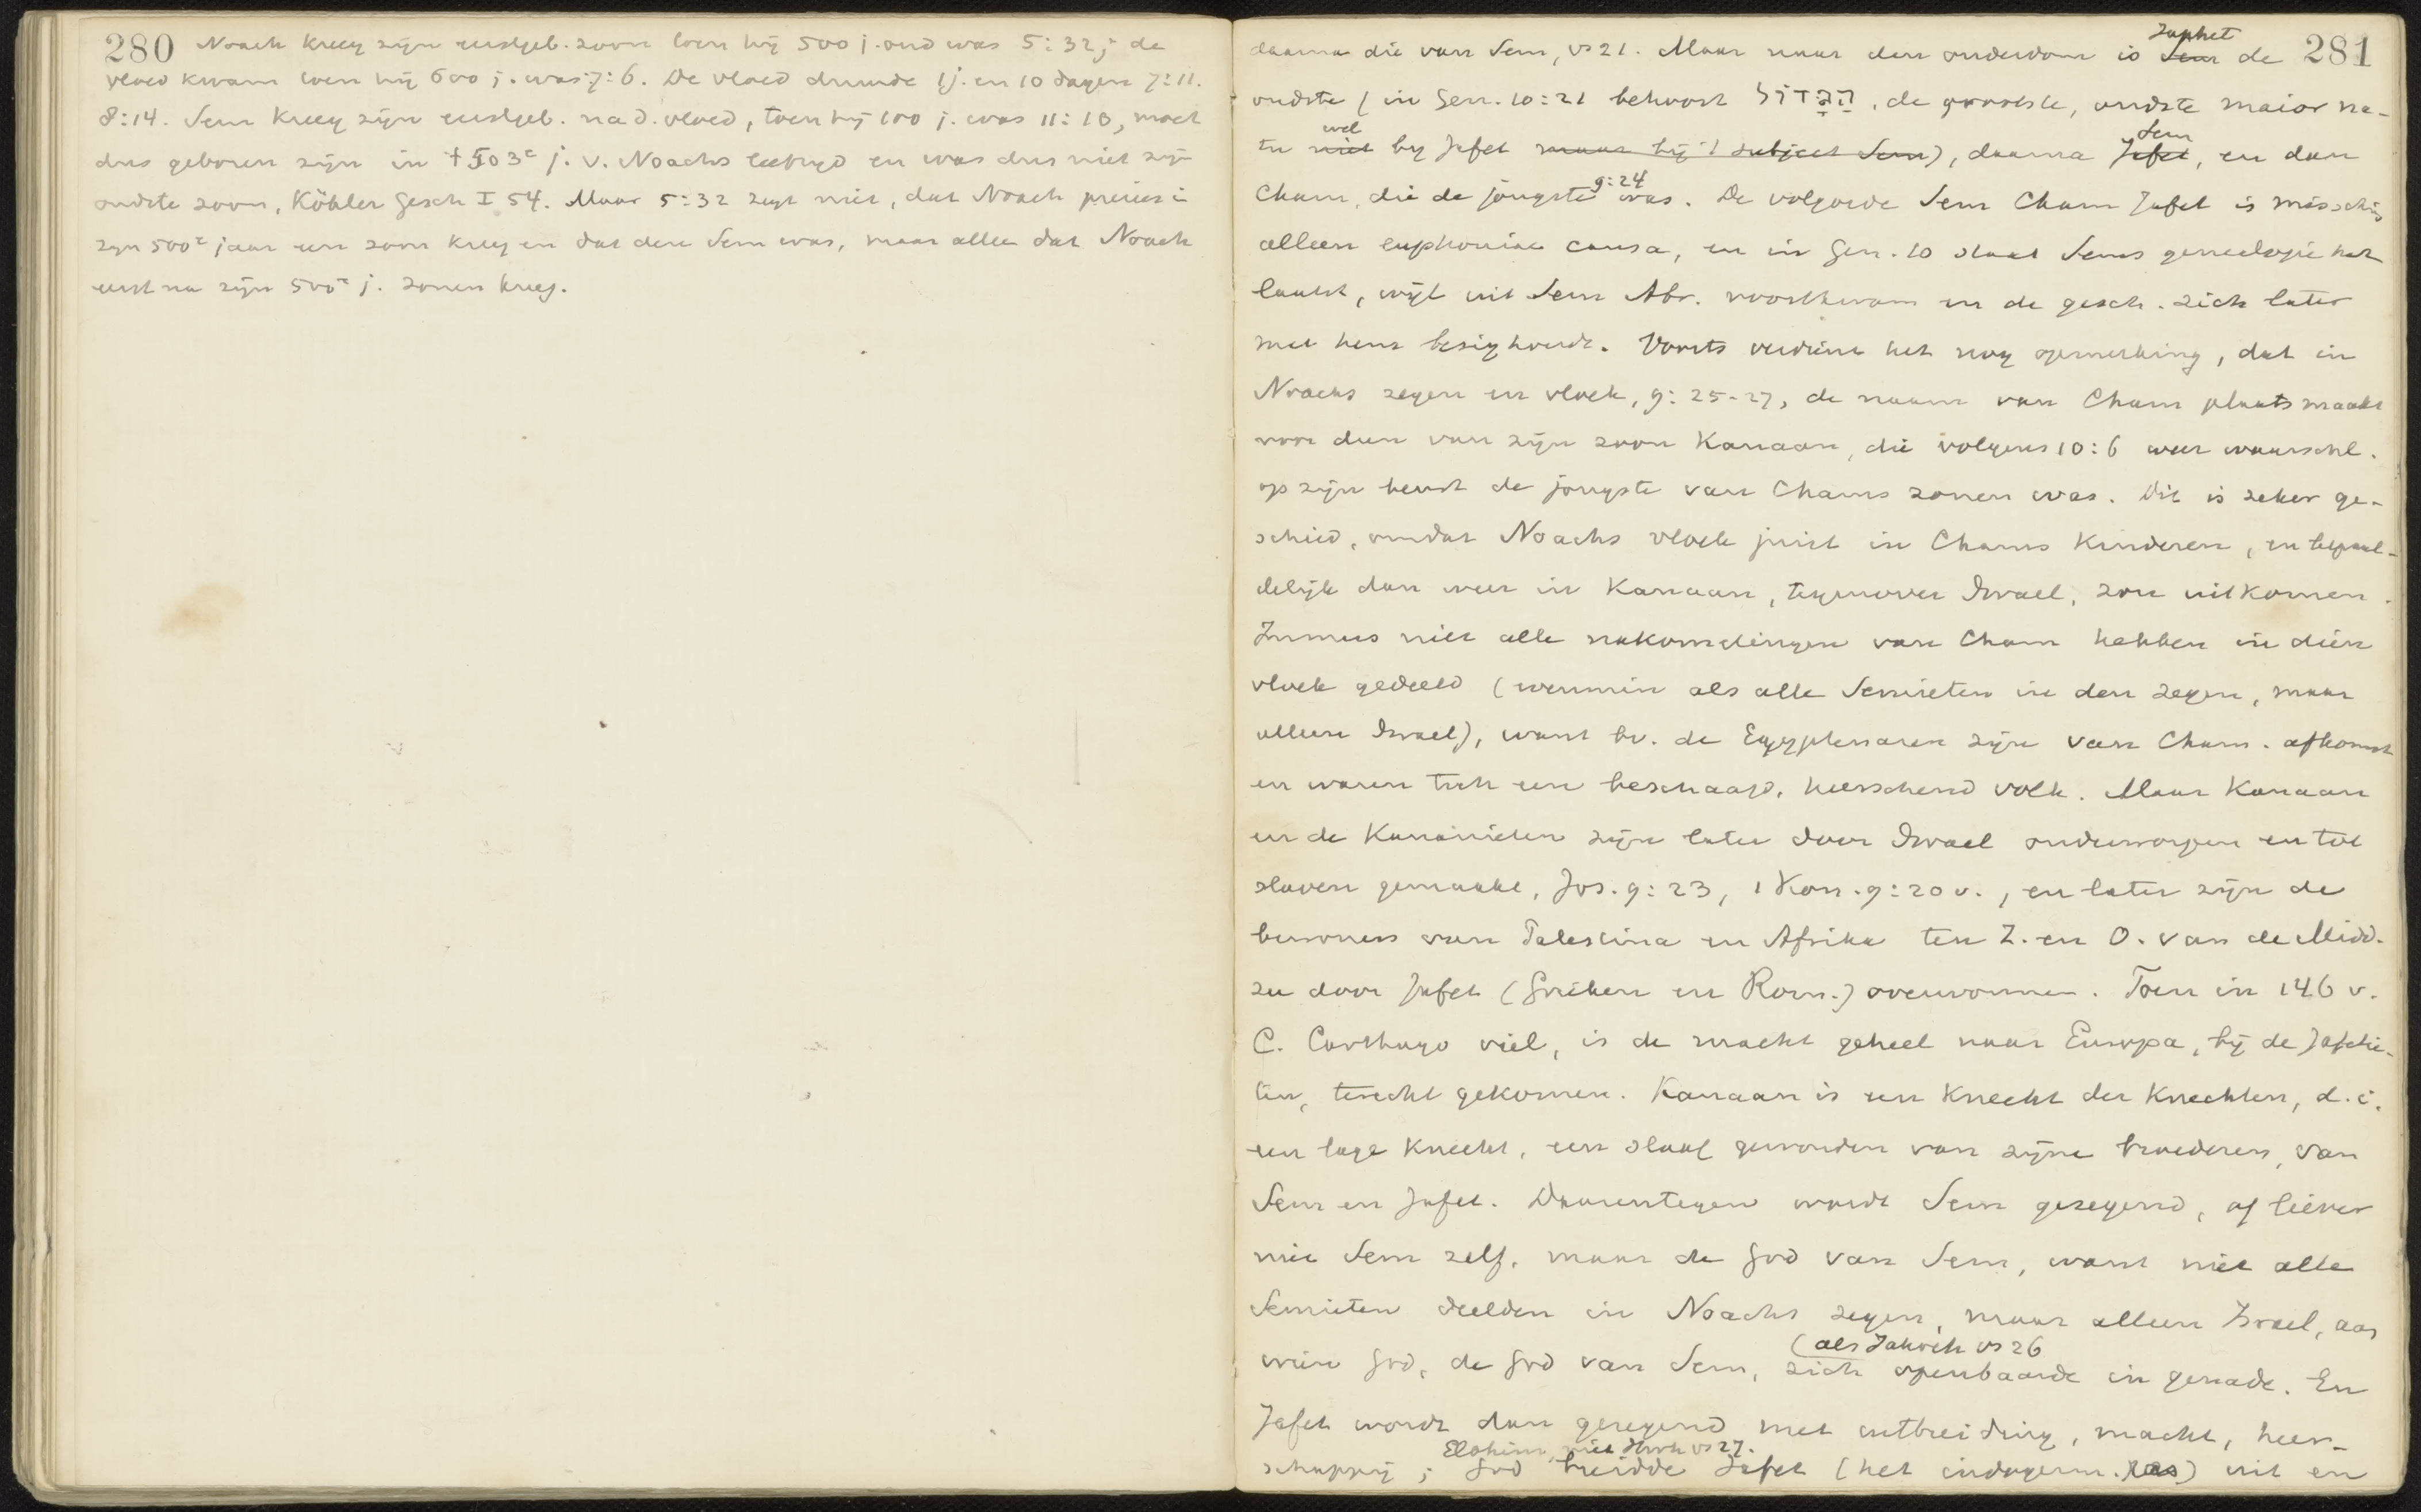 280 Noach kreeg zijn eerstgeb. zoon toen hij 500 j. oud was 5:32; de
vloed kwam toen hij 600 j. was 7:6. De vloed duurde 1 j. en 10 dagen 7:11.
8:14. Sem kreeg zijn eerstgeb. na d. vloed, toen hij 100 j. was 11:10, moet
dus geboren zijn in ± 503e j. v. Noachs leeftijd en was dus niet zijn
oudste zoon, Köhler Gesch I 54. Maar 5:32 zegt niet, dat Noach precies in
zijn 500e jaar een zoon kreeg en dat deze Sem was, maar alleen dat Noach
eerst na zijn 500e j. zonen kreeg.
281
daarna die van Sem, vs 21. Maar naar den ouderdom is Sem Japhet de
oudste (in Gen. 10:21 behoort הגדול, de grootste, oudste maior na-
tu niet wel bij Jafet maar bij 't subject Sem), daarna Jafet Sem, en dan
Cham, die de jongste 9:24 was. De volgorde Sem Cham Jafet is misschien
alleen euphoniae causa, en in Gen. 10 staat Sems genealogie het
laatst, wijl uit Sem Abr. voortkwam en de gesch. zich later
met hem bezighoudt. Voorts verdient het nog opmerking, dat in
Noachs zegen en vloek, 9:25-27, de naam van Cham plaats maakt
voor dien van zijn zoon Kanaan, die volgens 10:6 weer waarschl.
op zijn beurt de jongste van Chams zonen was. Dit is zeker ge-
schied, omdat Noachs vloek juist in Chams kinderen, en bepaal-
delijk dan weer in Kanaan, tegenover Israel, zou uitkomen.
Immers niet alle nakomelingen van Cham hebben in dien
vloek gedeeld (evenmin als alle Semieten in den zegen, maar
alleen Israel), want bv. de Egyptenaren zijn van Cham. afkomst
en waren toch een beschaafd, heerschend volk. Maar Kanaan
en de Kanaänieten zijn later door Israel onderworpen en tot
slaven gemaakt, Jos. 9:23, 1 Kon. 9:20 v., en later zijn de
bewoners van Palestina en Afrika ten Z. en O. van de Midd.
zee door Jafet (Grieken en Rom.) overwonnen. Toen in 146 v.
C. Carthago viel, is de macht geheel naar Europa, bij de Jafetie-
ten, terecht gekomen. Kanaan is een knecht der knechten, d.i.
een lage knecht, een slaaf geworden van zijne broederen, van
Sem en Jafet. Daarentegen wordt Sem gezegend, of liever
niet Sem zelf, maar de God van Sem, want niet alle
Semieten deelden in Noachs zegen, maar alleen Israel, aan
wien God, de God van Sem, (als Jahveh vs 26 zich openbaarde in genade. En
Jafet wordt dan gezegend met uitbreiding, macht, heer-
schappij; God Elohim, niet Jhvh vs 27. breidde Jafet (het indogerm. ras) uit en